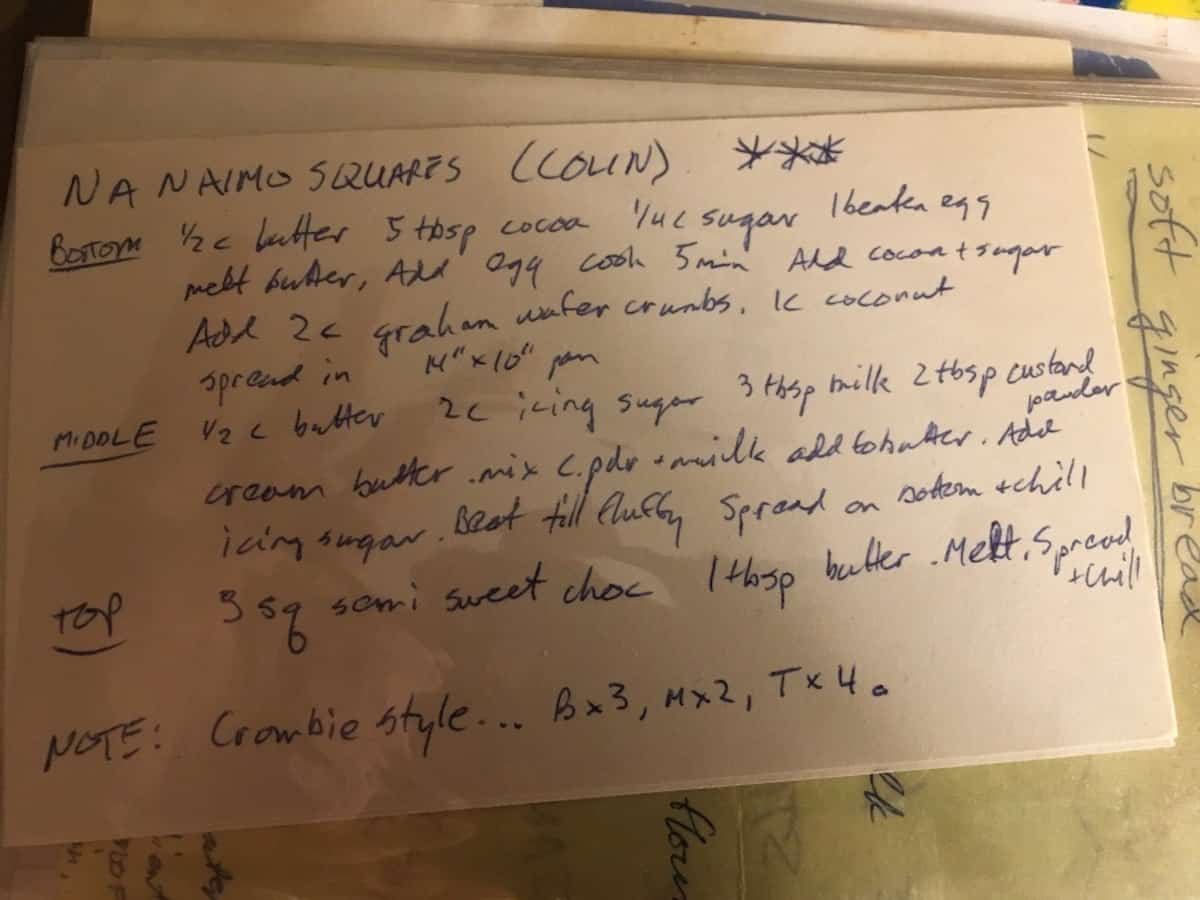 NANAIMO SQUARES (COLIN) ***
BOTTOM 1/2 c butter 5 tbsp cocoa 1/4 c sugar 1 beaten egg
melt butter, Add egg cook 5 min Add cocoa + sugar
Add 2 c graham wafer crumbs. 1c coconut
spread in 14" x 10" pan
MIDDLE 1/2 c butter 2c icing sugar 3 tbsp milk 2 tbsp custard
powder
cream butter. mix c. pdr + milk add to butter. Add
icing sugar. Beat till fluffy Spread on bottom + chill
TOP 3 sq semi sweet choc 1 tbsp butter. Melt. Spread
+ chill
NOTE: Crombie style... B x 3, M x 2, T x 4.
soft ginger bread
flour